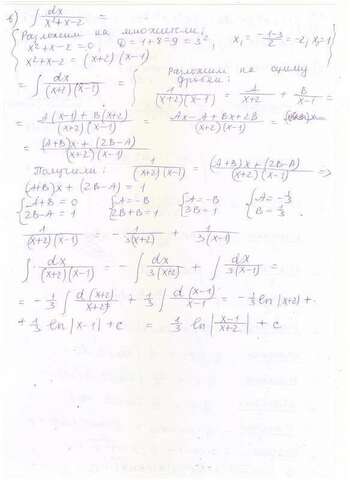 в) ∫ dx/(x²+x-2) =
{ Разложим на множители:
x²+x-2=0, D=1+8=9=3², x₁=(-1-3)/2=-2, x₂=1
x²+x-2 = (x+2)(x-1) }
= ∫ dx/((x+2)(x-1)) = { Разложим на сумму
дробей:
1/((x+2)(x-1)) = A/(x+2) + B/(x-1) =
= (A(x-1)+B(x+2))/((x+2)(x-1)) = (Ax-A+Bx+2B)/((x+2)(x-1)) =
= ((A+B)x+(2B-A))/((x+2)(x-1))
Получили: 1/((x+2)(x-1)) = ((A+B)x+(2B-A))/((x+2)(x-1)) =>
(A+B)x + (2B-A) = 1
{A+B=0 {A=-B {A=-B {A=-1/3
{2B-A=1 {2B+B=1 {3B=1 {B=1/3
1/((x+2)(x-1)) = -1/(3(x+2)) + 1/(3(x-1))
∫ dx/((x+2)(x-1)) = -∫ dx/(3(x+2)) + ∫ dx/(3(x-1)) =
= -1/3 ∫ d(x+2)/(x+2) + 1/3 ∫ d(x-1)/(x-1) = -1/3 ln|x+2| +
+ 1/3 ln|x-1| + c = 1/3 ln|(x-1)/(x+2)| + c